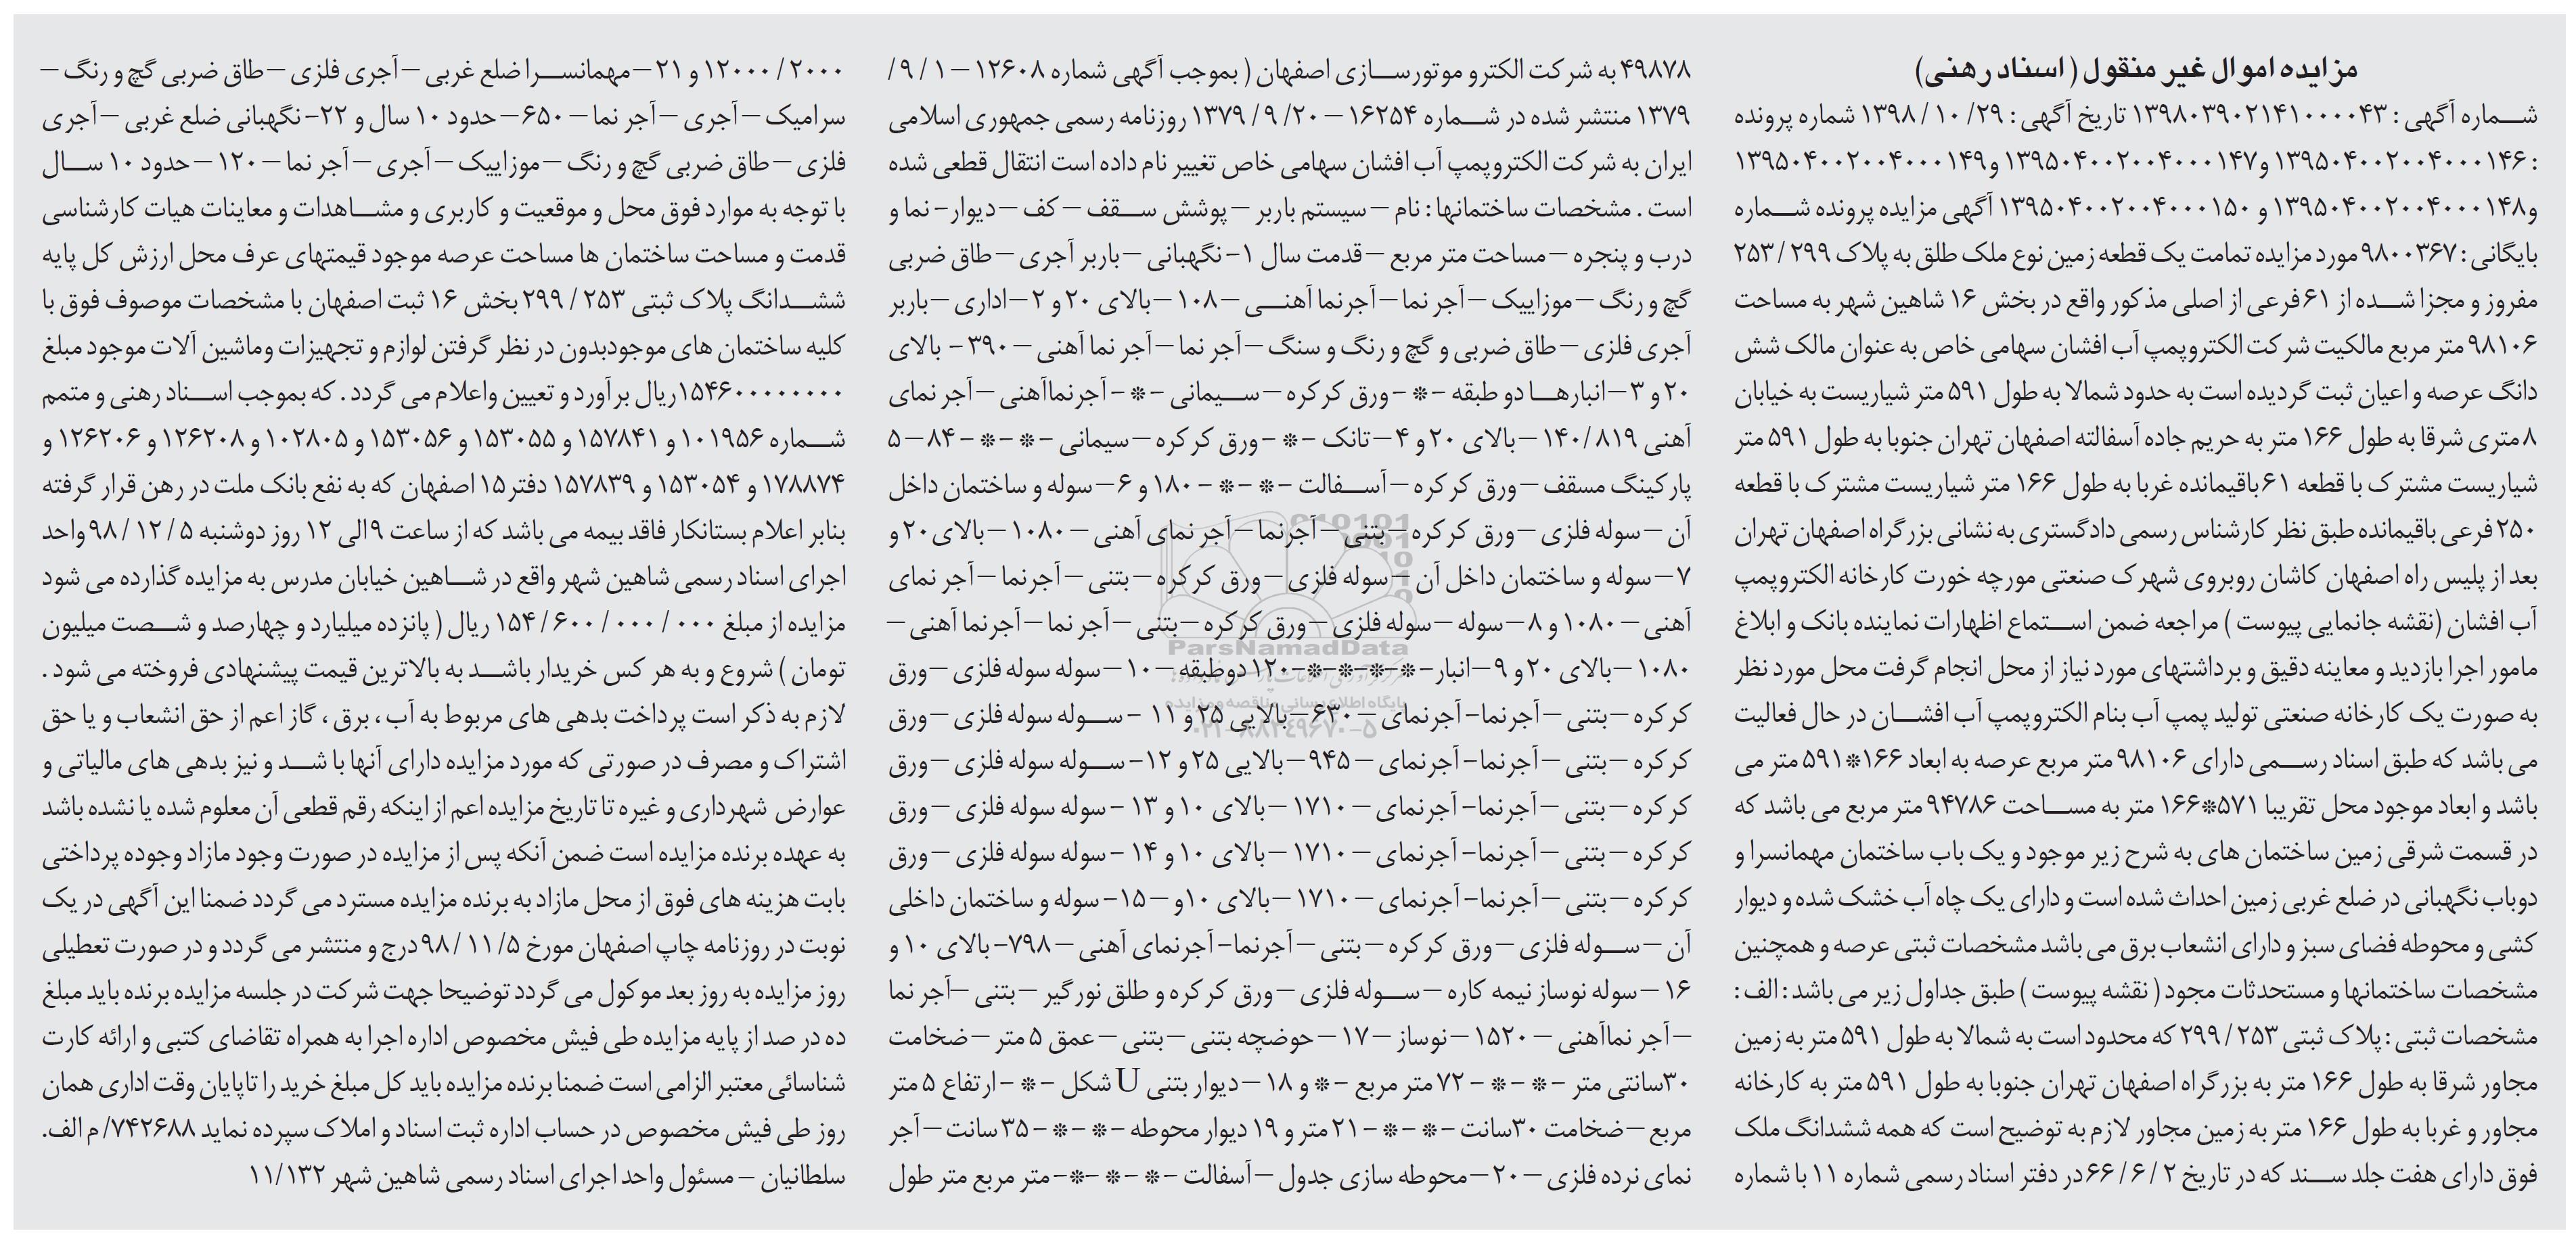 مزایده اموال غیر منقول ( اسناد رهنی)
شماره آگهی : ۱۳۹۸۰۳۹۰۲۱۴۱۰۰۰۰۴۳ تاریخ آگهی : ۲۹/ ۱۰ / ۱۳۹۸ شماره پرونده
: ۱۳۹۵۰۴۰۰۲۰۰۴۰۰۰۱۴۶ و۱۳۹۵۰۴۰۰۲۰۰۴۰۰۰۱۴۷ و۱۳۹۵۰۴۰۰۲۰۰۴۰۰۰۱۴۹
و۱۳۹۵۰۴۰۰۲۰۰۴۰۰۰۱۴۸ و ۱۳۹۵۰۴۰۰۲۰۰۴۰۰۰۱۵۰ آگهی مزایده پرونده شماره
بایگانی : ۹۸۰۰۳۶۷ مورد مزایده تمامت یک قطعه زمین نوع ملک طلق به پلاک ۲۹۹ / ۲۵۳
مفروز و مجزا شده از ۶۱ فرعی از اصلی مذکور واقع در بخش ۱۶ شاهین شهر به مساحت
۹۸۱۰۶ متر مربع مالکیت شرکت الکتروپمپ آب افشان سهامی خاص به عنوان مالک شش
دانگ عرصه و اعیان ثبت گردیده است به حدود شمالا به طول ۵۹۱ متر شیاریست به خیابان
۸ متری شرقا به طول ۱۶۶ متر به حریم جاده آسفالته اصفهان تهران جنوبا به طول ۵۹۱ متر
شیاریست مشترک با قطعه ۶۱ باقیمانده غربا به طول ۱۶۶ متر شیاریست مشترک با قطعه
۲۵۰ فرعی باقیمانده طبق نظر کارشناس رسمی دادگستری به نشانی بزرگراه اصفهان تهران
بعد از پلیس راه اصفهان کاشان روبروی شهرک صنعتی مورچه خورت کارخانه الکتروپمپ
آب افشان (نقشه جانمایی پیوست ) مراجعه ضمن استماع اظهارات نماینده بانک و ابلاغ
مامور اجرا بازدید و معاینه دقیق و برداشتهای مورد نیاز از محل انجام گرفت محل مورد نظر
به صورت یک کارخانه صنعتی تولید پمپ آب بنام الکتروپمپ آب افشان در حال فعالیت
می باشد که طبق اسناد رسمی دارای ۹۸۱۰۶ متر مربع عرصه به ابعاد ۱۶۶*۵۹۱ متر می
باشد و ابعاد موجود محل تقریبا ۵۷۱*۱۶۶ متر به مساحت ۹۴۷۸۶ متر مربع می باشد که
در قسمت شرقی زمین ساختمان های به شرح زیر موجود و یک باب ساختمان مهمانسرا و
دوباب نگهبانی در ضلع غربی زمین احداث شده است و دارای یک چاه آب خشک شده و دیوار
کشی و محوطه فضای سبز و دارای انشعاب برق می باشد مشخصات ثبتی عرصه و همچنین
مشخصات ساختمانها و مستحدثات مجود ( نقشه پیوست ) طبق جداول زیر می باشد : الف :
مشخصات ثبتی : پلاک ثبتی ۲۵۳ / ۲۹۹ که محدود است به شمالا به طول ۵۹۱ متر به زمین
مجاور شرقا به طول ۱۶۶ متر به بزرگراه اصفهان تهران جنوبا به طول ۵۹۱ متر به کارخانه
مجاور و غربا به طول ۱۶۶ متر به زمین مجاور لازم به توضیح است که همه ششدانگ ملک
فوق دارای هفت جلد سند که در تاریخ ۲ / ۶ / ۶۶ در دفتر اسناد رسمی شماره ۱۱ با شماره
۴۹۸۷۸ به شرکت الکترو موتورسازی اصفهان ( بموجب آگهی شماره ۱۲۶۰۸ – ۱ / ۹ /
۱۳۷۹ منتشر شده در شماره ۱۶۲۵۴ – ۲۰/ ۹ / ۱۳۷۹ روزنامه رسمی جمهوری اسلامی
ایران به شرکت الکتروپمپ آب افشان سهامی خاص تغییر نام داده است انتقال قطعی شده
است . مشخصات ساختمانها : نام – سیستم باربر – پوشش سقف – کف – دیوار- نما و
درب و پنجره – مساحت متر مربع – قدمت سال ۱- نگهبانی – باربر آجری – طاق ضربی
گچ و رنگ – موزاییک – آجر نما – آجرنما آهنی – ۱۰۸ – بالای ۲۰ و ۲ – اداری – باربر
آجری فلزی – طاق ضربی و گچ و رنگ و سنگ – آجر نما – آجر نما آهنی – ۳۹۰ – بالای
۲۰ و ۳ – انبارها دو طبقه -*- ورق کرکره – سیمانی -*- آجرنماآهنی – آجر نمای
آهنی ۸۱۹ /۱۴۰ – بالای ۲۰ و ۴ – تانک -*- ورق کرکره – سیمانی -*-*- ۸۴ – ۵
پارکینگ مسقف – ورق کرکره – آسفالت -*-*- ۱۸۰ و ۶ – سوله و ساختمان داخل
آن – سوله فلزی – ورق کرکره – بتنی – آجرنما – آجر نمای آهنی – ۱۰۸۰ – بالای ۲۰ و
۷ – سوله و ساختمان داخل آن – سوله فلزی – ورق کرکره – بتنی – آجرنما – آجر نمای
آهنی – ۱۰۸۰ و ۸ – سوله – سوله فلزی – ورق کرکره – بتنی – آجر نما – آجرنما آهنی –
۱۰۸۰ – بالای ۲۰ و ۹ – انبار -*-*-*-*-۱۲۰ دوطبقه – ۱۰ – سوله سوله فلزی – ورق
کرکره – بتنی – آجرنما- آجرنمای – ۶۳۰ – بالایی ۲۵ و ۱۱ - سوله سوله فلزی – ورق
کرکره – بتنی – آجرنما- آجرنمای – ۹۴۵ – بالایی ۲۵ و ۱۲- سوله سوله فلزی – ورق
کرکره – بتنی – آجرنما- آجرنمای – ۱۷۱۰ – بالای ۱۰ و ۱۳ - سوله سوله فلزی – ورق
کرکره – بتنی – آجرنما- آجرنمای – ۱۷۱۰ – بالای ۱۰ و ۱۴ - سوله سوله فلزی – ورق
کرکره – بتنی – آجرنما- آجرنمای – ۱۷۱۰ – بالای ۱۰و – ۱۵- سوله و ساختمان داخلی
آن – سوله فلزی – ورق کرکره – بتنی – آجرنما- آجرنمای آهنی – ۷۹۸- بالای ۱۰ و
۱۶ – سوله نوساز نیمه کاره – سوله فلزی – ورق کرکره و طلق نورگیر – بتنی – آجر نما
– آجر نماآهنی – ۱۵۲۰ – نوساز – ۱۷ – حوضچه بتنی – بتنی – عمق ۵ متر – ضخامت
۳۰سانتی متر -*-*- ۷۲ متر مربع -* و ۱۸ – دیوار بتنی U شکل -*- ارتفاع ۵ متر
مربع – ضخامت ۳۰سانت -*-*- ۲۱ متر و ۱۹ دیوار محوطه -*-*- ۳۵ سانت – آجر
نمای نرده فلزی – ۲۰ – محوطه سازی جدول – آسفالت -*-*-*- متر مربع متر طول
۲۰۰۰ / ۱۲۰۰۰ و ۲۱ – مهمانسرا ضلع غربی – آجری فلزی – طاق ضربی گچ و رنگ –
سرامیک – آجری – آجر نما – ۶۵۰ – حدود ۱۰ سال و ۲۲- نگهبانی ضلع غربی – آجری
فلزی – طاق ضربی گچ و رنگ – موزاییک – آجری – آجر نما – ۱۲۰ – حدود ۱۰ سال
با توجه به موارد فوق محل و موقعیت و کاربری و مشاهدات و معاینات هیات کارشناسی
قدمت و مساحت ساختمان ها مساحت عرصه موجود قیمتهای عرف محل ارزش کل پایه
ششدانگ پلاک ثبتی ۲۵۳ / ۲۹۹ بخش ۱۶ ثبت اصفهان با مشخصات موصوف فوق با
کلیه ساختمان های موجودبدون در نظر گرفتن لوازم و تجهیزات وماشین آلات موجود مبلغ
۱۵۴۶۰۰۰۰۰۰۰۰ریال برآورد و تعیین واعلام می گردد . که بموجب اسناد رهنی و متمم
شماره ۱۰۱۹۵۶ و ۱۵۷۸۴۱ و ۱۵۳۰۵۵ و ۱۵۳۰۵۶ و ۱۰۲۸۰۵ و ۱۲۶۲۰۸ و ۱۲۶۲۰۶ و
۱۷۸۸۷۴ و ۱۵۳۰۵۴ و ۱۵۷۸۳۹ دفتر۱۵ اصفهان که به نفع بانک ملت در رهن قرار گرفته
بنابر اعلام بستانکار فاقد بیمه می باشد که از ساعت ۹ الی ۱۲ روز دوشنبه ۵ / ۱۲ / ۹۸ واحد
اجرای اسناد رسمی شاهین شهر واقع در شاهین خیابان مدرس به مزایده گذارده می شود
مزایده از مبلغ ۰۰۰ / ۰۰۰ / ۶۰۰ / ۱۵۴ ریال ( پانزده میلیارد و چهارصد و شصت میلیون
تومان ) شروع و به هر کس خریدار باشد به بالاترین قیمت پیشنهادی فروخته می شود .
لازم به ذکر است پرداخت بدهی های مربوط به آب ، برق ، گاز اعم از حق انشعاب و یا حق
اشتراک و مصرف در صورتی که مورد مزایده دارای آنها با شد و نیز بدهی های مالیاتی و
عوارض شهرداری و غیره تا تاریخ مزایده اعم از اینکه رقم قطعی آن معلوم شده یا نشده باشد
به عهده برنده مزایده است ضمن آنکه پس از مزایده در صورت وجود مازاد وجوده پرداختی
بابت هزینه های فوق از محل مازاد به برنده مزایده مسترد می گردد ضمنا این آگهی در یک
نوبت در روزنامه چاپ اصفهان مورخ ۵/ ۱۱ / ۹۸ درج و منتشر می گردد و در صورت تعطیلی
روز مزایده به روز بعد موکول می گردد توضیحا جهت شرکت در جلسه مزایده برنده باید مبلغ
ده در صد از پایه مزایده طی فیش مخصوص اداره اجرا به همراه تقاضای کتبی و ارائه کارت
شناسائی معتبر الزامی است ضمنا برنده مزایده باید کل مبلغ خرید را تاپایان وقت اداری همان
روز طی فیش مخصوص در حساب اداره ثبت اسناد و املاک سپرده نماید ۷۴۲۶۸۸/ م الف.
سلطانیان – مسئول واحد اجرای اسناد رسمی شاهین شهر ۱۱/۱۳۲
ParsNamadData
پایگاه اطلاع رسانی مناقصه و مزایده
۰۲۱-۸۸۳۴۹۶۷۰-۵